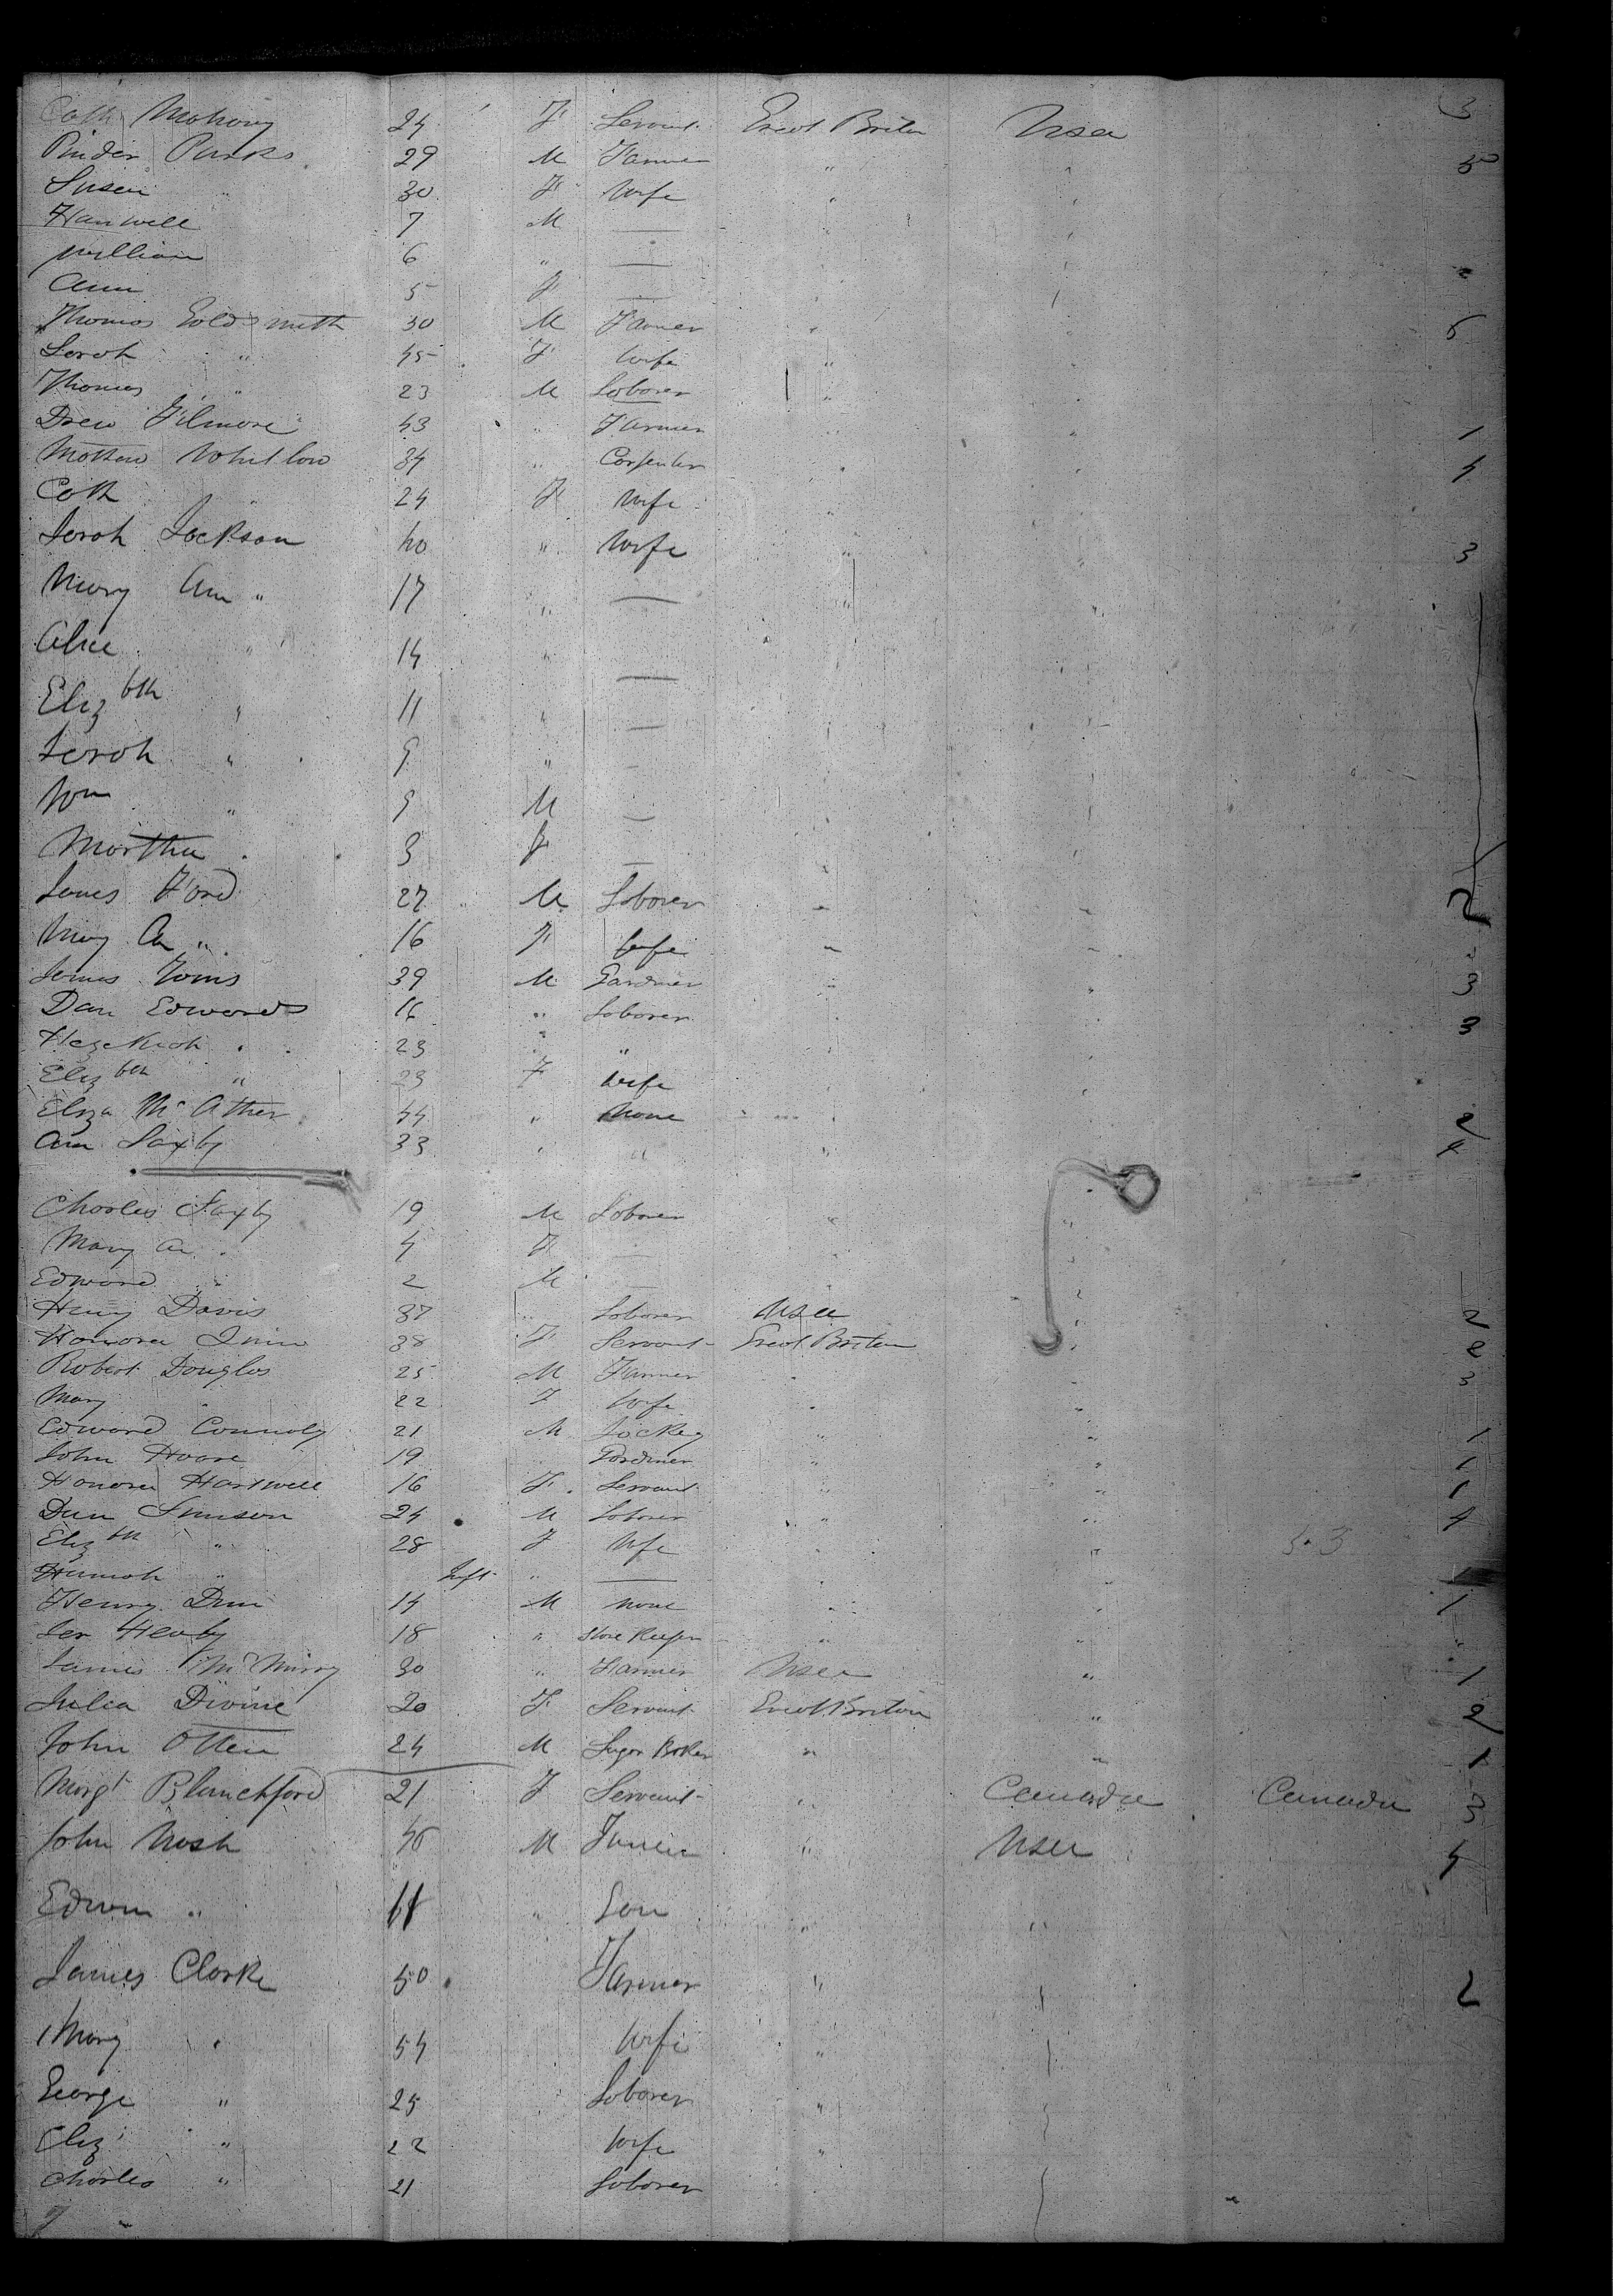 Cath Mahony 24 F Servant Great Britn Usa 3
Pinder Parks 29 M Farmer " " 5
Susan " 30 F Wife " "
Hanwell 7 M — "
William 6 " — "
Ann 5 F — " "
Thomas Goldsmith 50 M Farmer " " 5
Sarah " 45 F Wife " "
Thomas " 23 M Laborer " "
Drew Filmore 43 " Farmer " " 1
Mathew Whitlow 34 " Carpenter " 4
Cath " 24 F Wife
Sarah Jackson 40 " Wife " " 3
Mary Ann " 17 " — " "
Alice " 14 " —
Eliz bth " 11 " —
Sarah " 9 " —
Wm " 9 M —
Martha 3 F —
James Ford 27 M Laborer " " 2
Mary An " 16 F Wife " "
James Toms 39 M Gardner " " 3
Dan Edwards 16 " Laborer " 3
Hezekiah " 23 " "
Eliz bth " 23 F Wife "
Eliza Mc Ather 44 " None " " 2
Ann Saxby 33 " " " 4
Charles Saxby 19 M Laborer " "
Mary An " 4 F — "
Edward " 2 M — "
Henry Davis 37 " Laborer Usa " 2
Honora Quin 38 F Servant Great Briten " 2
Robert Douglas 25 M Farmer " " 3
Mary " 22 F Wife " "
Edward Connoly 21 M Jockey " " 1
John Hoare 19 Gardner " " 1
Honora Hartwell 16 F Servant " " 1
Dan Simson 24 M Laborer " " 4
Eliz bth " 28 F Wife " "
Hannah " Inft " — " "
Henry Dun 14 M None " " 1
Jer Heaby 18 " Store Keeper " " "
James McMurry 30 " Farmer Usa " 1
Julia Divine 20 F Servant Great Briton " 2
John Otten 24 M Sugar Baker " " 1
Margt Blanchford 21 F Servant " Canada Canada 3
John Nash 46 M Farmer " Usa 4
Edwin " 11 " Son " "
James Clarke 50 Farmer " " 2
Mary " 54 Wife " "
George " 25 Laborer " "
Eliz " 22 Wife " "
Charles " 21 Laborer